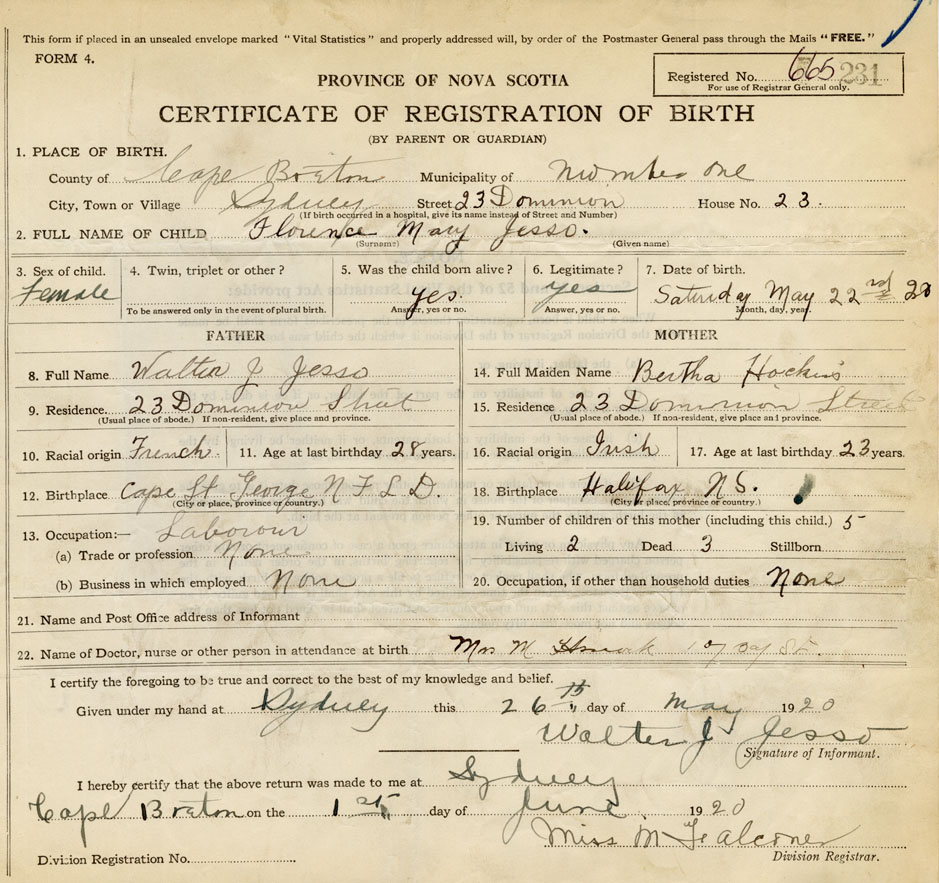 This form if placed in an unsealed envelope marked "Vital Statistics" and properly addressed will, by order of the Postmaster General pass through the Mails "FREE."
FORM 4.
Registered No. 665 231
For use of Registrar General only.
PROVINCE OF NOVA SCOTIA
CERTIFICATE OF REGISTRATION OF BIRTH
(BY PARENT OR GUARDIAN)
1. PLACE OF BIRTH.
County of Cape Breton Municipality of Number one
City, Town or Village Sydney Street 23 Dominion House No. 23.
(If birth occurred in a hospital, give its name instead of Street and Number)
2. FULL NAME OF CHILD Florence Mary Jesso.
(Surname) (Given name)
3. Sex of child. 4. Twin, triplet or other? 5. Was the child born alive? 6. Legitimate? 7. Date of birth.
Female yes. yes Saturday May 22nd 20
To be answered only in the event of plural birth. Answer, yes or no. Answer, yes or no. Month, day, year.
FATHER
8. Full Name Walter J Jesso
9. Residence. 23 Dominion Street
(Usual place of abode.) If non-resident, give place and province.
10. Racial origin French. 11. Age at last birthday 28 years.
12. Birthplace Cape St George N F L D.
(City or place, province or country.)
13. Occupation:— Labourour
(a) Trade or profession None.
(b) Business in which employed None
MOTHER
14. Full Maiden Name Bertha Hockins
15. Residence 23 Dominion Street
(Usual place of abode.) If non-resident, give place and province.
16. Racial origin Irish 17. Age at last birthday 23 years.
18. Birthplace Halifax N S.
(City or place, province or country.)
19. Number of children of this mother (including this child.) 5
Living 2 Dead 3 Stillborn
20. Occupation, if other than household duties None
21. Name and Post Office address of Informant
22. Name of Doctor, nurse or other person in attendance at birth Mrs M
I certify the foregoing to be true and correct to the best of my knowledge and belief.
Given under my hand at Sydney this 26th day of May 1920
Walter J Jesso
Signature of Informant.
I hereby certify that the above return was made to me at Sydney
Cape Breton on the 1st day of June 1920
Miss M Falconer
Division Registrar.
Division Registration No.